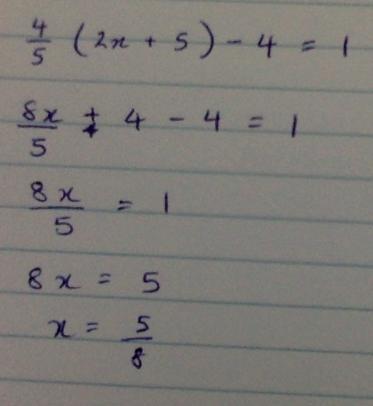 4/5 (2x + 5) - 4 = 1
8x/5 + 4 - 4 = 1
8x/5 = 1
8x = 5
x = 5/8